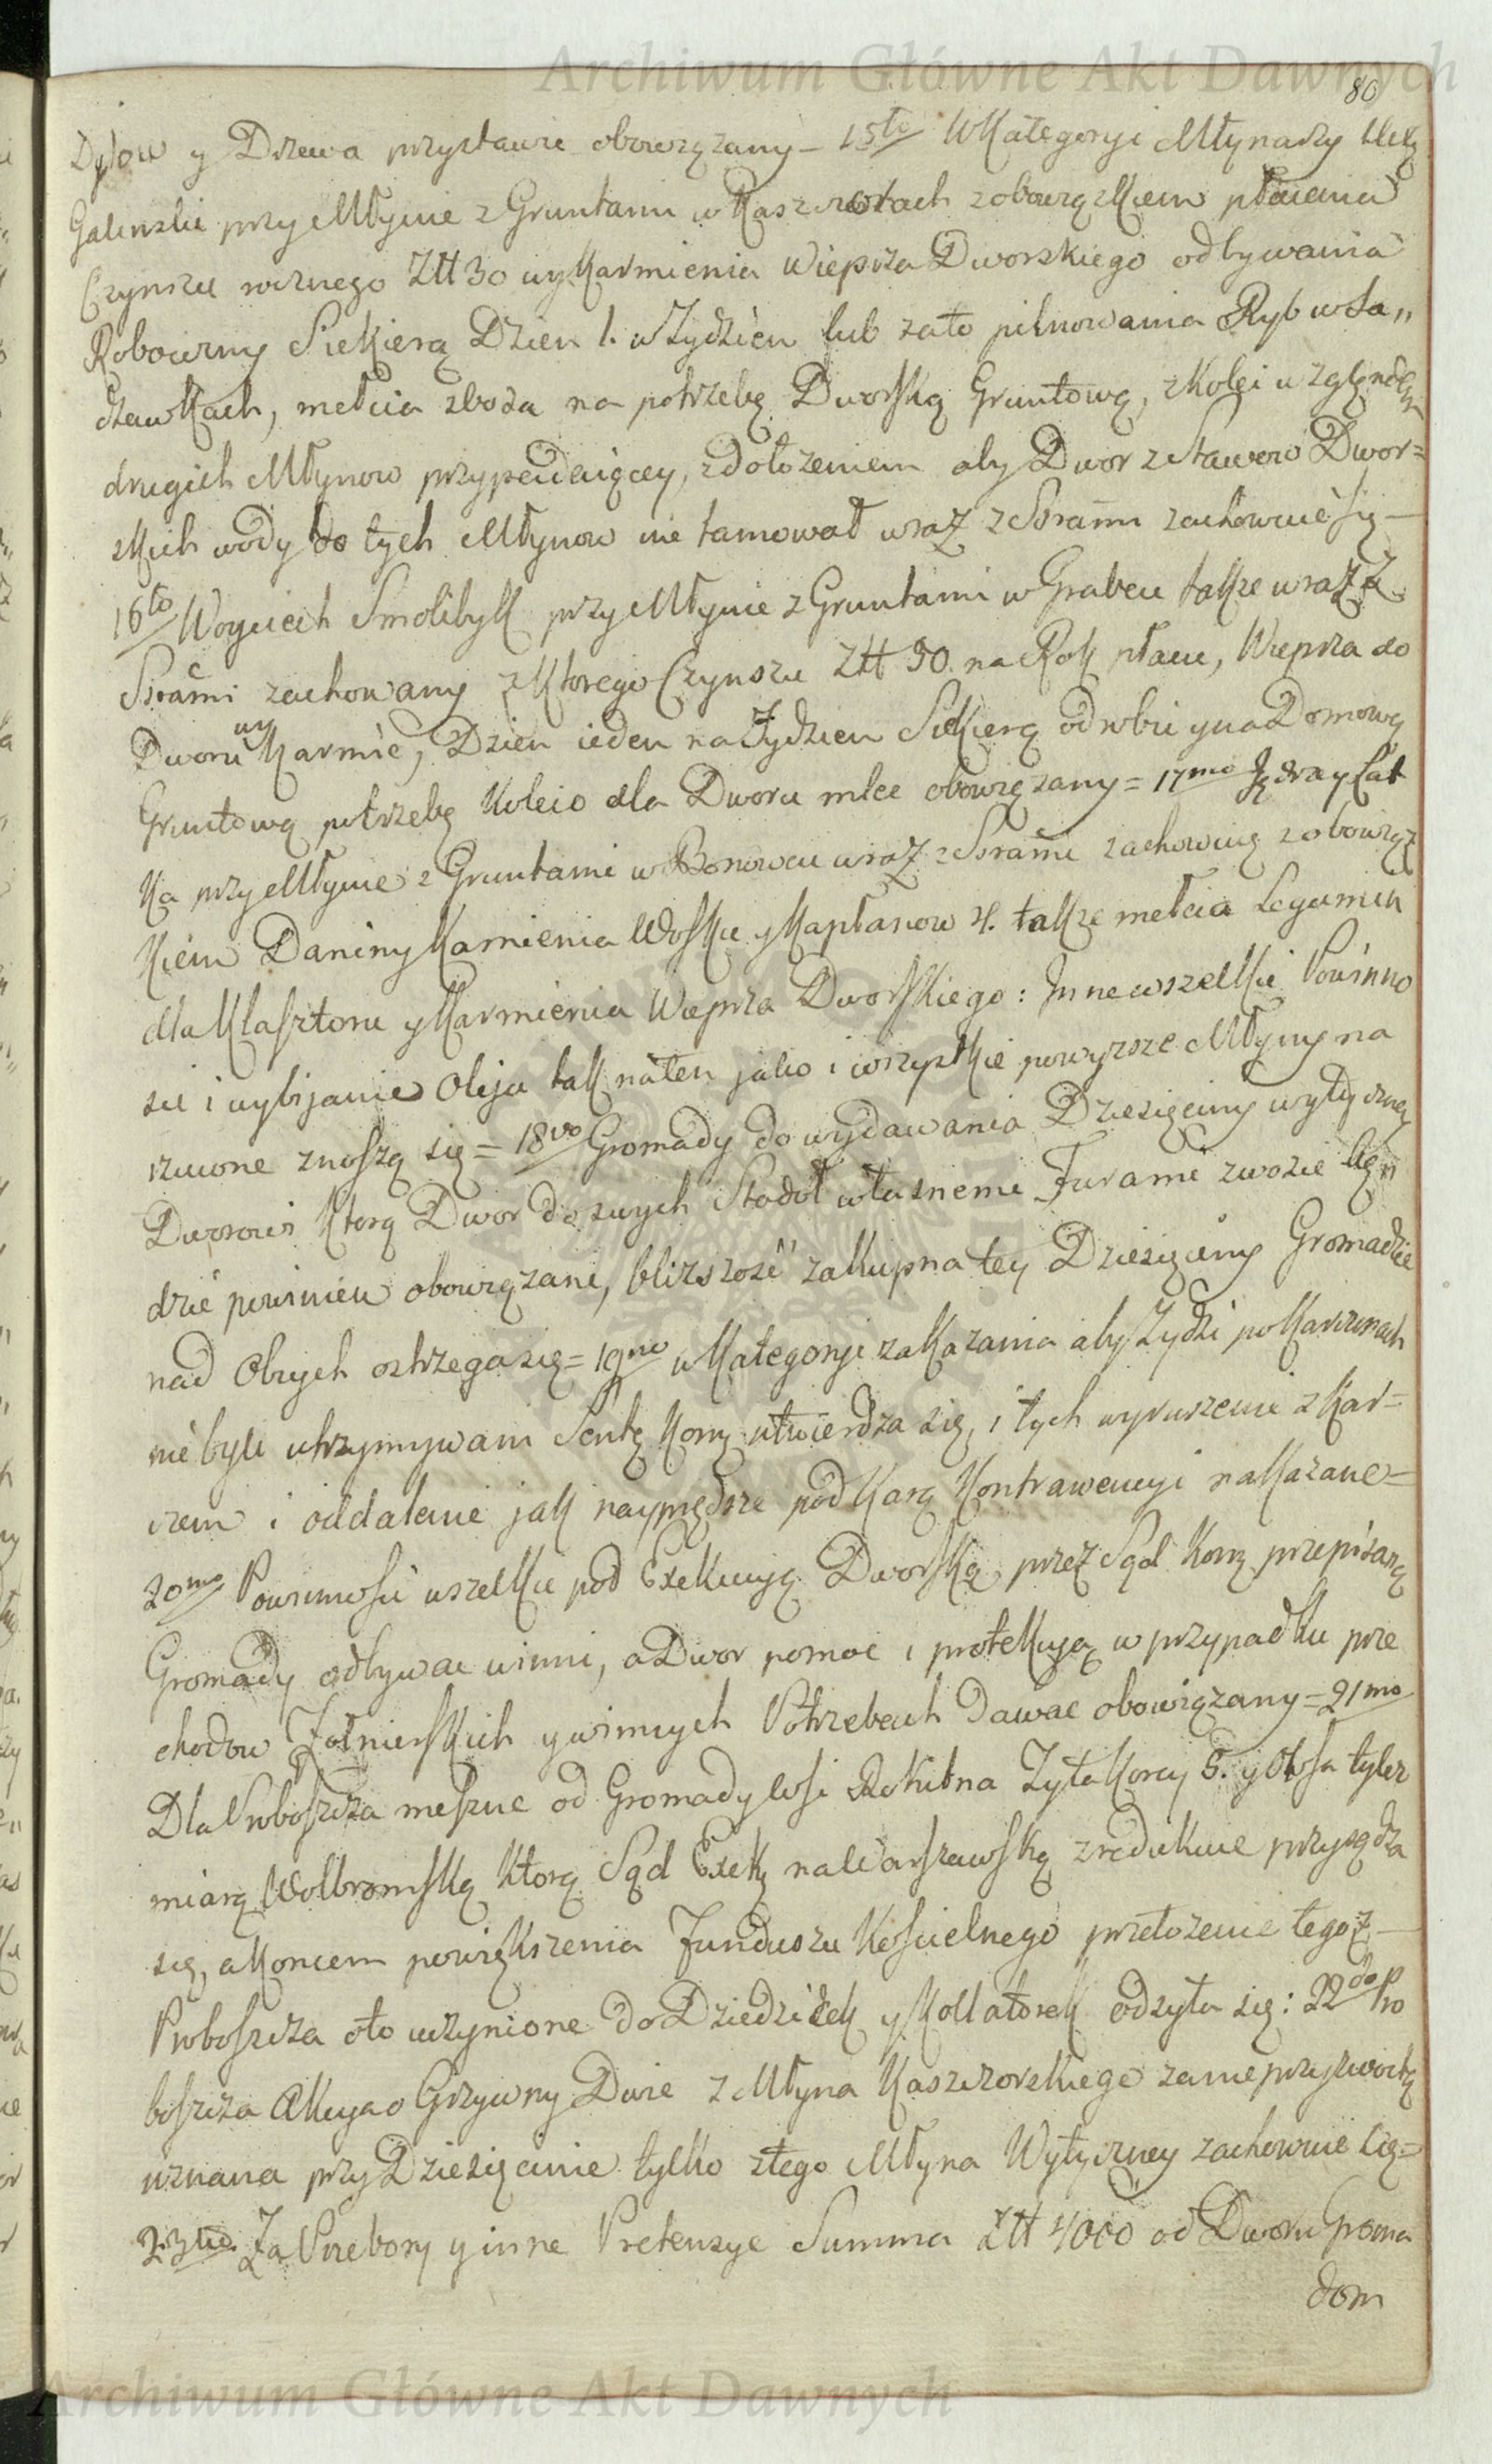 Archiwum Główne Akt Dawnych
80
Dylow y Drzewa przystawic obowiązany – 15to W Kategoryi Młynarzy
Galinskie przy Młynie z Gruntami w Kaszczorkach z obowiązkiem płacenia
Czynszu rocznego Złł 30 wykarmienia Wieprza Dworskiego odbywania
Robocizny Siekierą Dzien 1. w Tydzien lub zato pilnowania Ryb w Sa„
dzawkach, mełcia zboza na potrzebę Dworską Gruntową, z Kolei względem
drugich Młynow przypadaiącey, z dołozeniem aby Dwor z Stawow Dwor=
skich wody do tych Młynow nie tamował wraz z Sorami zachowuie się –
16to Woyciech Smolibyk przy Młynie z Gruntami w Grabcu takze wraz z
Sorami zachowany z Ktorego Czynszu Złł 50 na Rok płacic, Wieprza do
Dworu wykarmic, Dzien ieden na Tydzien Siekierą odrobic y na Domową
Gruntową potrzebę Koleio dla Dworu mlec obowiązany = 17mo Jędrzey Łat
Ka przy Młynie z Gruntami w Bonowcu wraz z Sorami zachowuię z obowiąz
Kiem Daniny Kamienia Wosku y Kapłanow 4. także mełcia Legumin
dla Klasztoru y Karmienia Wieprza Dworskiego: Inne wszelkie Powinno
sci i wybijanie Oleju tak na ten jako i wszystkie powyzsze Młyny na
rzucone znoszą się = 18vo Gromady do wydawania Dziesięciny wytyczney
Dworowi Ktorą Dwor do swych Stodoł własnemi Furami zwozic bę„
dzie powinien obowiązani, blizszosc zakupna tey Dziesięciny Gromadzie
nad Obcych ostrzega się = 19no w Kategoryi zakazania aby Żydzi po Karczmach
nie byli utrzymywani Sentę Komę utwierdza się, i tych wyruszenie z Kar=
czem i oddalenie jak nayprędsze pod Karą Kontrawencyi nakazane =
20mo Powinnosci wszelkie pod Exekucyą Dworską przez Sąd Komę przepisaną
Gromady odbywac winni, a Dwor pomoc i protekcyą w przypadku prze
chodow Żołnierskich y w innych Potrzebach dawac obowiązany = 21mo
Dla Proboszcza meszne od Gromady Wsi Rokitna Żyta Korcy 5. y Owsa tylez
miarą Wolbromską Ktorą Sąd Exekę na Warszawską zredukuie przysądza
się, a Koncem powiększenia Funduszu Koscielnego przełozenie tegoz –
Proboszcza oto uczynione do Dziedziczek y Kollatorek odsyła się: 22do Pro
boszcza Akcya o Grzywny Dwie z Młyna Kaszczorskiego za nieprzyzwoitą
uznana przy Dziesięcinie tylko z tego Młyna Wytyczney zachowuie się =
23tio Za Przebory y inne Pretensye Summa Złł 4000 od Dworu Groma
dom
Archiwum Główne Akt Dawnych